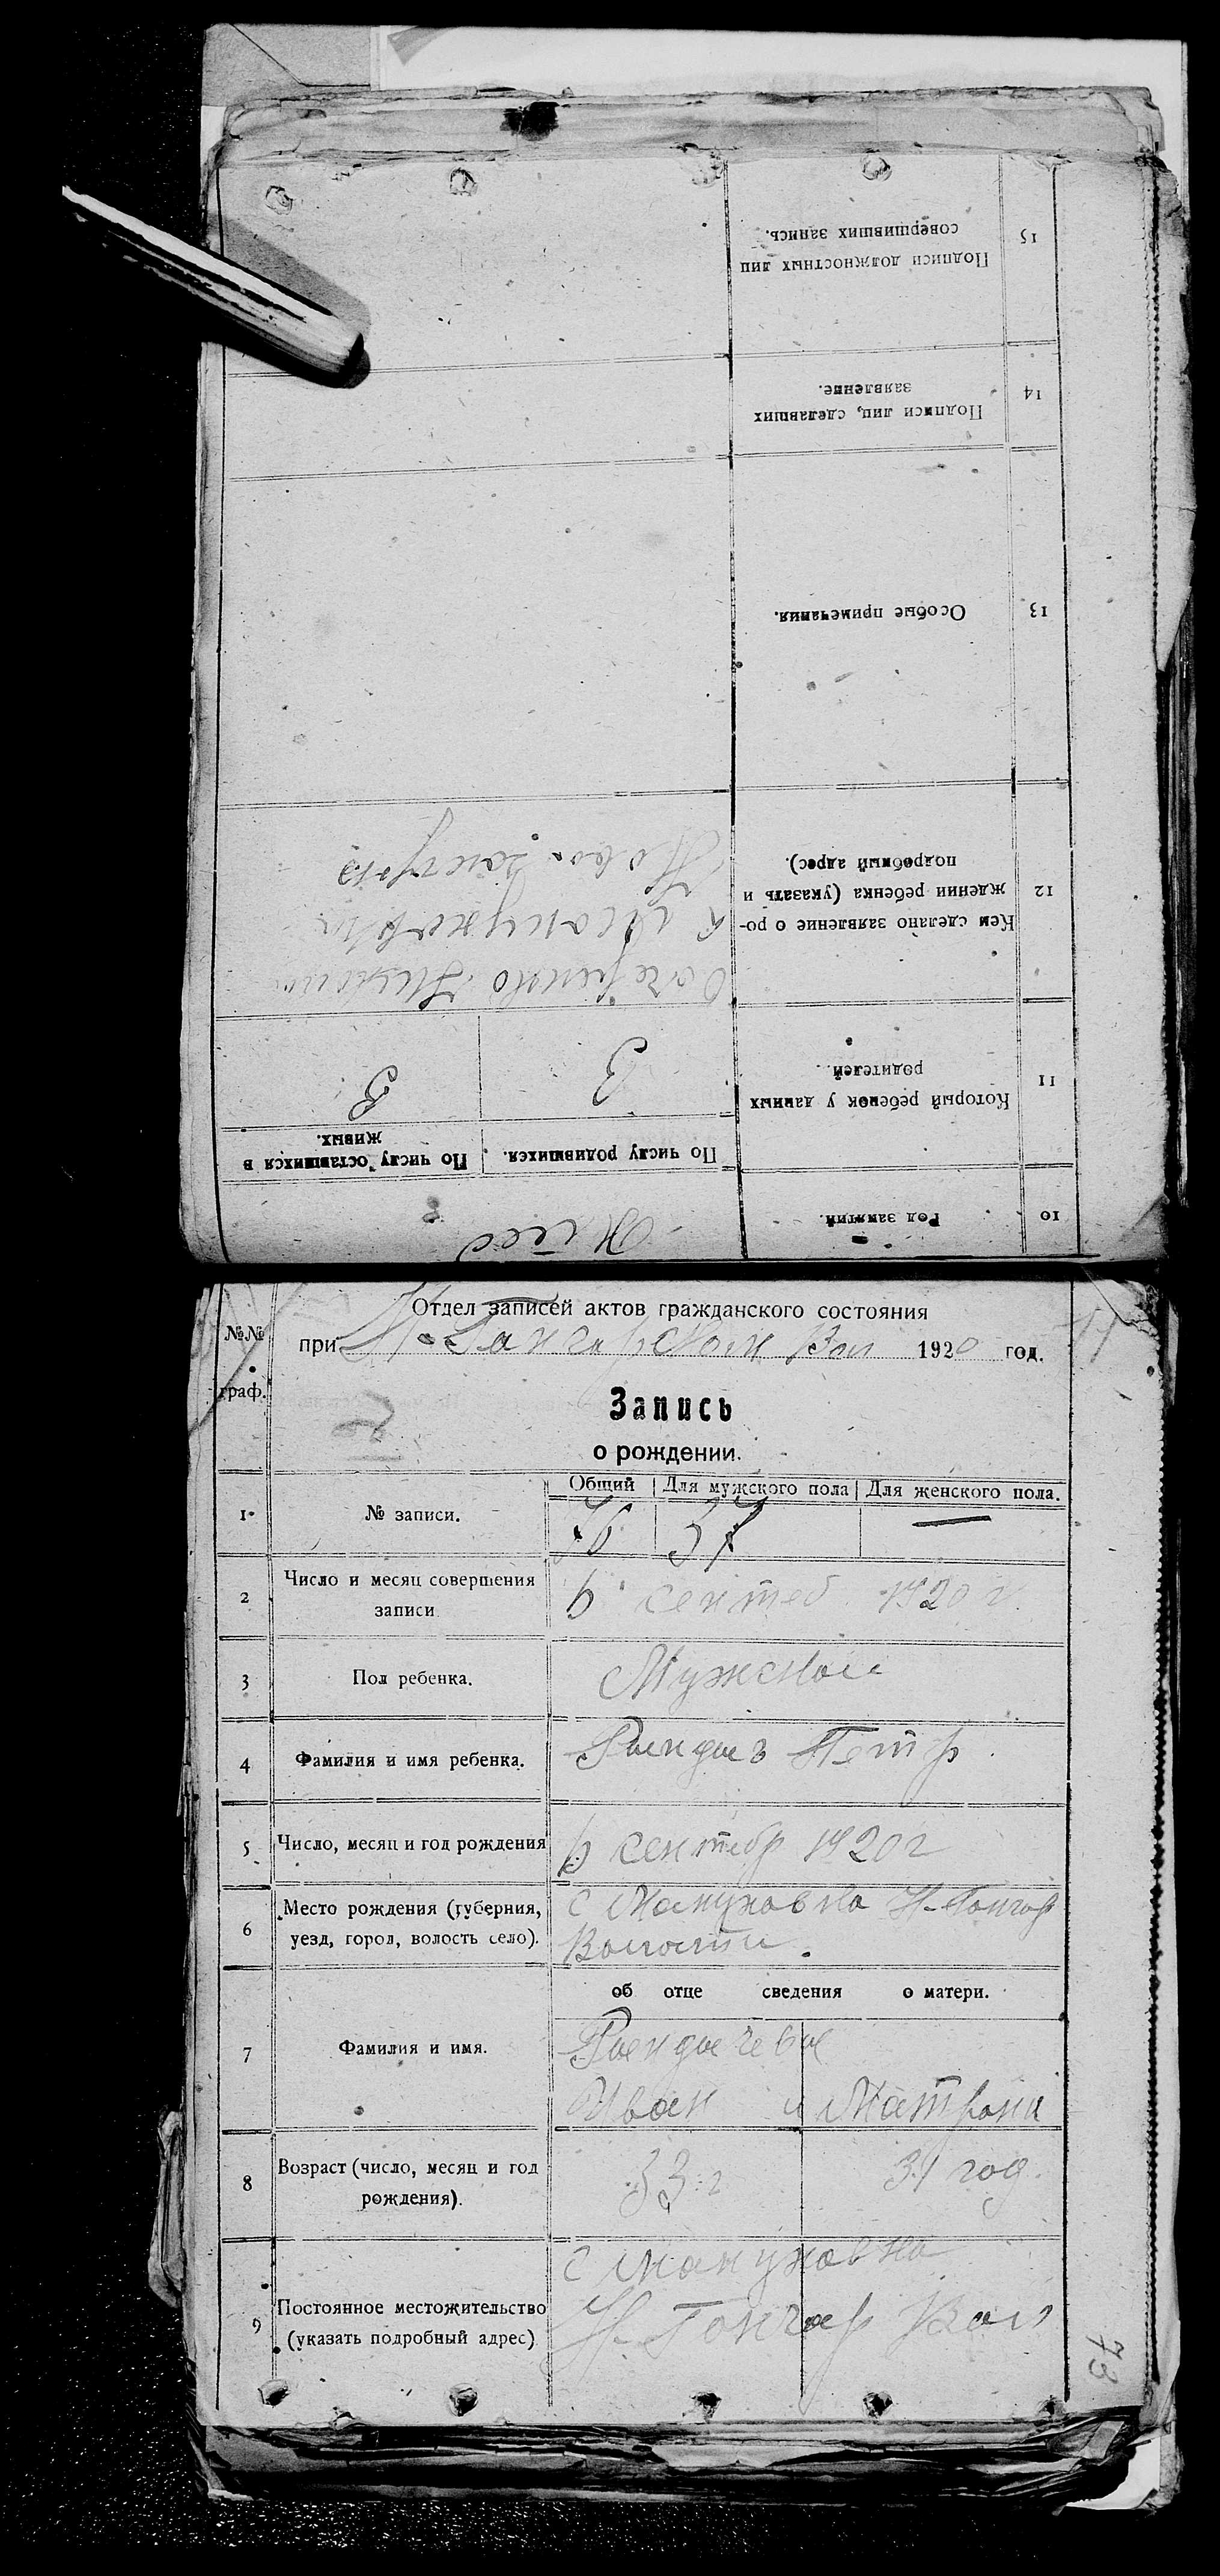 Отдел записей актов гражданского состояния
при Н-Гончарском Вол 1920 год.
Запись
о рождении.
№№ граф.
Общий Для мужского пола Для женского пола.
1 № записи. 37 —
2 Число и месяц совершения
записи 6 сентеб 1920 г.
3 Пол ребенка. Мужской
4 Фамилия и имя ребенка. Петр
5 Число, месяц и год рождения 6 сентебр 1920 г
6 Место рождения (губерния,
уезд, город, волость село).
с Мануховка Н-Гончар
Волости.
об отце сведения о матери.
7 Фамилия и имя.
Иван и Матрона
8 Возраст (число, месяц и год
рождения).
33 г 31 год.
9 Постоянное местожительство
(указать подробный адрес)
с Мануховка
Н Гончар Вол
73
10 Род занятий.
11 Который ребенок у данных
родителей.
По числу родившихся. По числу оставшихся в
живых.
3 3
12 Кем сделано заявление о ро-
ждении ребенка (указать и
подробный адрес).
13 Особые примечания.
14 Подписи лиц, сделавших
заявление.
15 Подписи должностных лиц
совершивших запись.